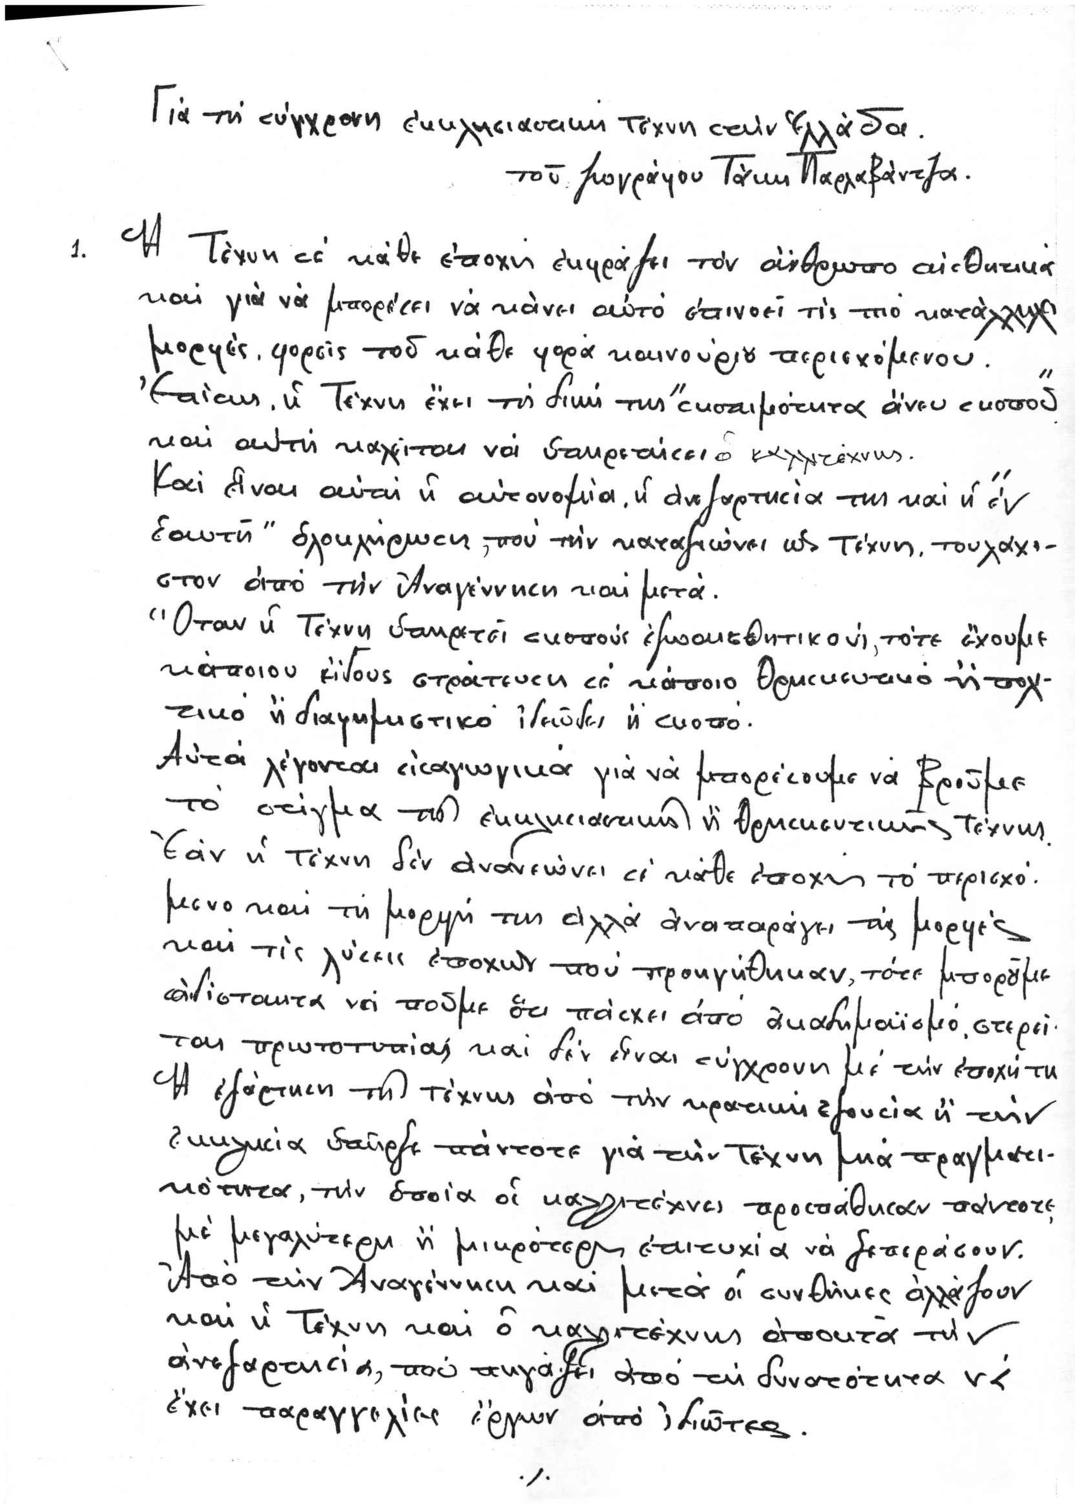 Γιά τή σύγχρονη ἐκκλησιαστική τέχνη στήν Ἑλλάδα.
τοῦ ζωγράφου Τάκη Παρλαβάντζα.
1. Ἡ Τέχνη σέ κάθε ἐποχή ἐκφράζει τόν ἄνθρωπο αἰσθητικά
καί γιά νά μπορέσει νά κάνει αὐτό ἐπινοεῖ τίς πιό κατάλληλες
μορφές, φορεῖς τοῦ κάθε φορά καινούριου περιεχόμενου.
Ἐπίσης, ἡ Τέχνη ἔχει τή δική της "σκοπιμότητα ἄνευ σκοποῦ"
καί αὐτή καλεῖται νά ὑπηρετήσει ὁ καλλιτέχνης.
Καί εἶναι αὐτή ἡ αὐτονομία, ἡ ἀνεξαρτησία της καί ἡ "ἐν
ἑαυτῇ" ὁλοκλήρωση, πού τήν καταξιώνει ὡς Τέχνη, τουλάχι-
στον ἀπό τήν Ἀναγέννηση καί μετά.
Ὅταν ἡ Τέχνη ὑπηρετεῖ σκοπούς ἐξωαισθητικούς, τότε ἔχουμε
κάποιου εἴδους στράτευση σέ κάποιο θρησκευτικό ἤ πολι-
τικό ἤ διαφημιστικό ἰδεῶδες ἤ σκοπό.
Αὐτά λέγονται εἰσαγωγικά γιά νά μπορέσουμε νά βροῦμε
τό στίγμα τῆς ἐκκλησιαστικῆς ἤ θρησκευτικῆς τέχνης.
Ἐάν ἡ τέχνη δέν ἀνανεώνει σέ κάθε ἐποχή τό περιεχό-
μενο καί τή μορφή της ἀλλά ἀναπαράγει τίς μορφές
καί τίς λύσεις ἐποχῶν πού προηγήθηκαν, τότε μποροῦμε
ἀδίστακτα νά ποῦμε ὅτι πάσχει ἀπό ἀκαδημαϊσμό, στερεῖ-
ται πρωτοτυπίας καί δέν εἶναι σύγχρονη μέ τήν ἐποχή τη
Ἡ ἐξάρτηση τῆς τέχνης ἀπό τήν κρατική ἐξουσία ἤ τήν
ἐκκλησία ὑπῆρξε πάντοτε γιά τήν Τέχνη μιά πραγματι-
κότητα, τήν ὁποία οἱ καλλιτέχνες προσπάθησαν πάντοτε,
μέ μεγαλύτερη ἤ μικρότερη ἐπιτυχία νά ξεπεράσουν.
Ἀπό τήν Ἀναγέννηση καί μετά οἱ συνθῆκες ἀλλάζουν
καί ἡ Τέχνη καί ὁ καλλιτέχνης ἀποκτᾶ τήν
ἀνεξαρτησία, πού πηγάζει ἀπό τή δυνατότητα νά
ἔχει παραγγελίες ἔργων ἀπό ἰδιῶτες.
./.